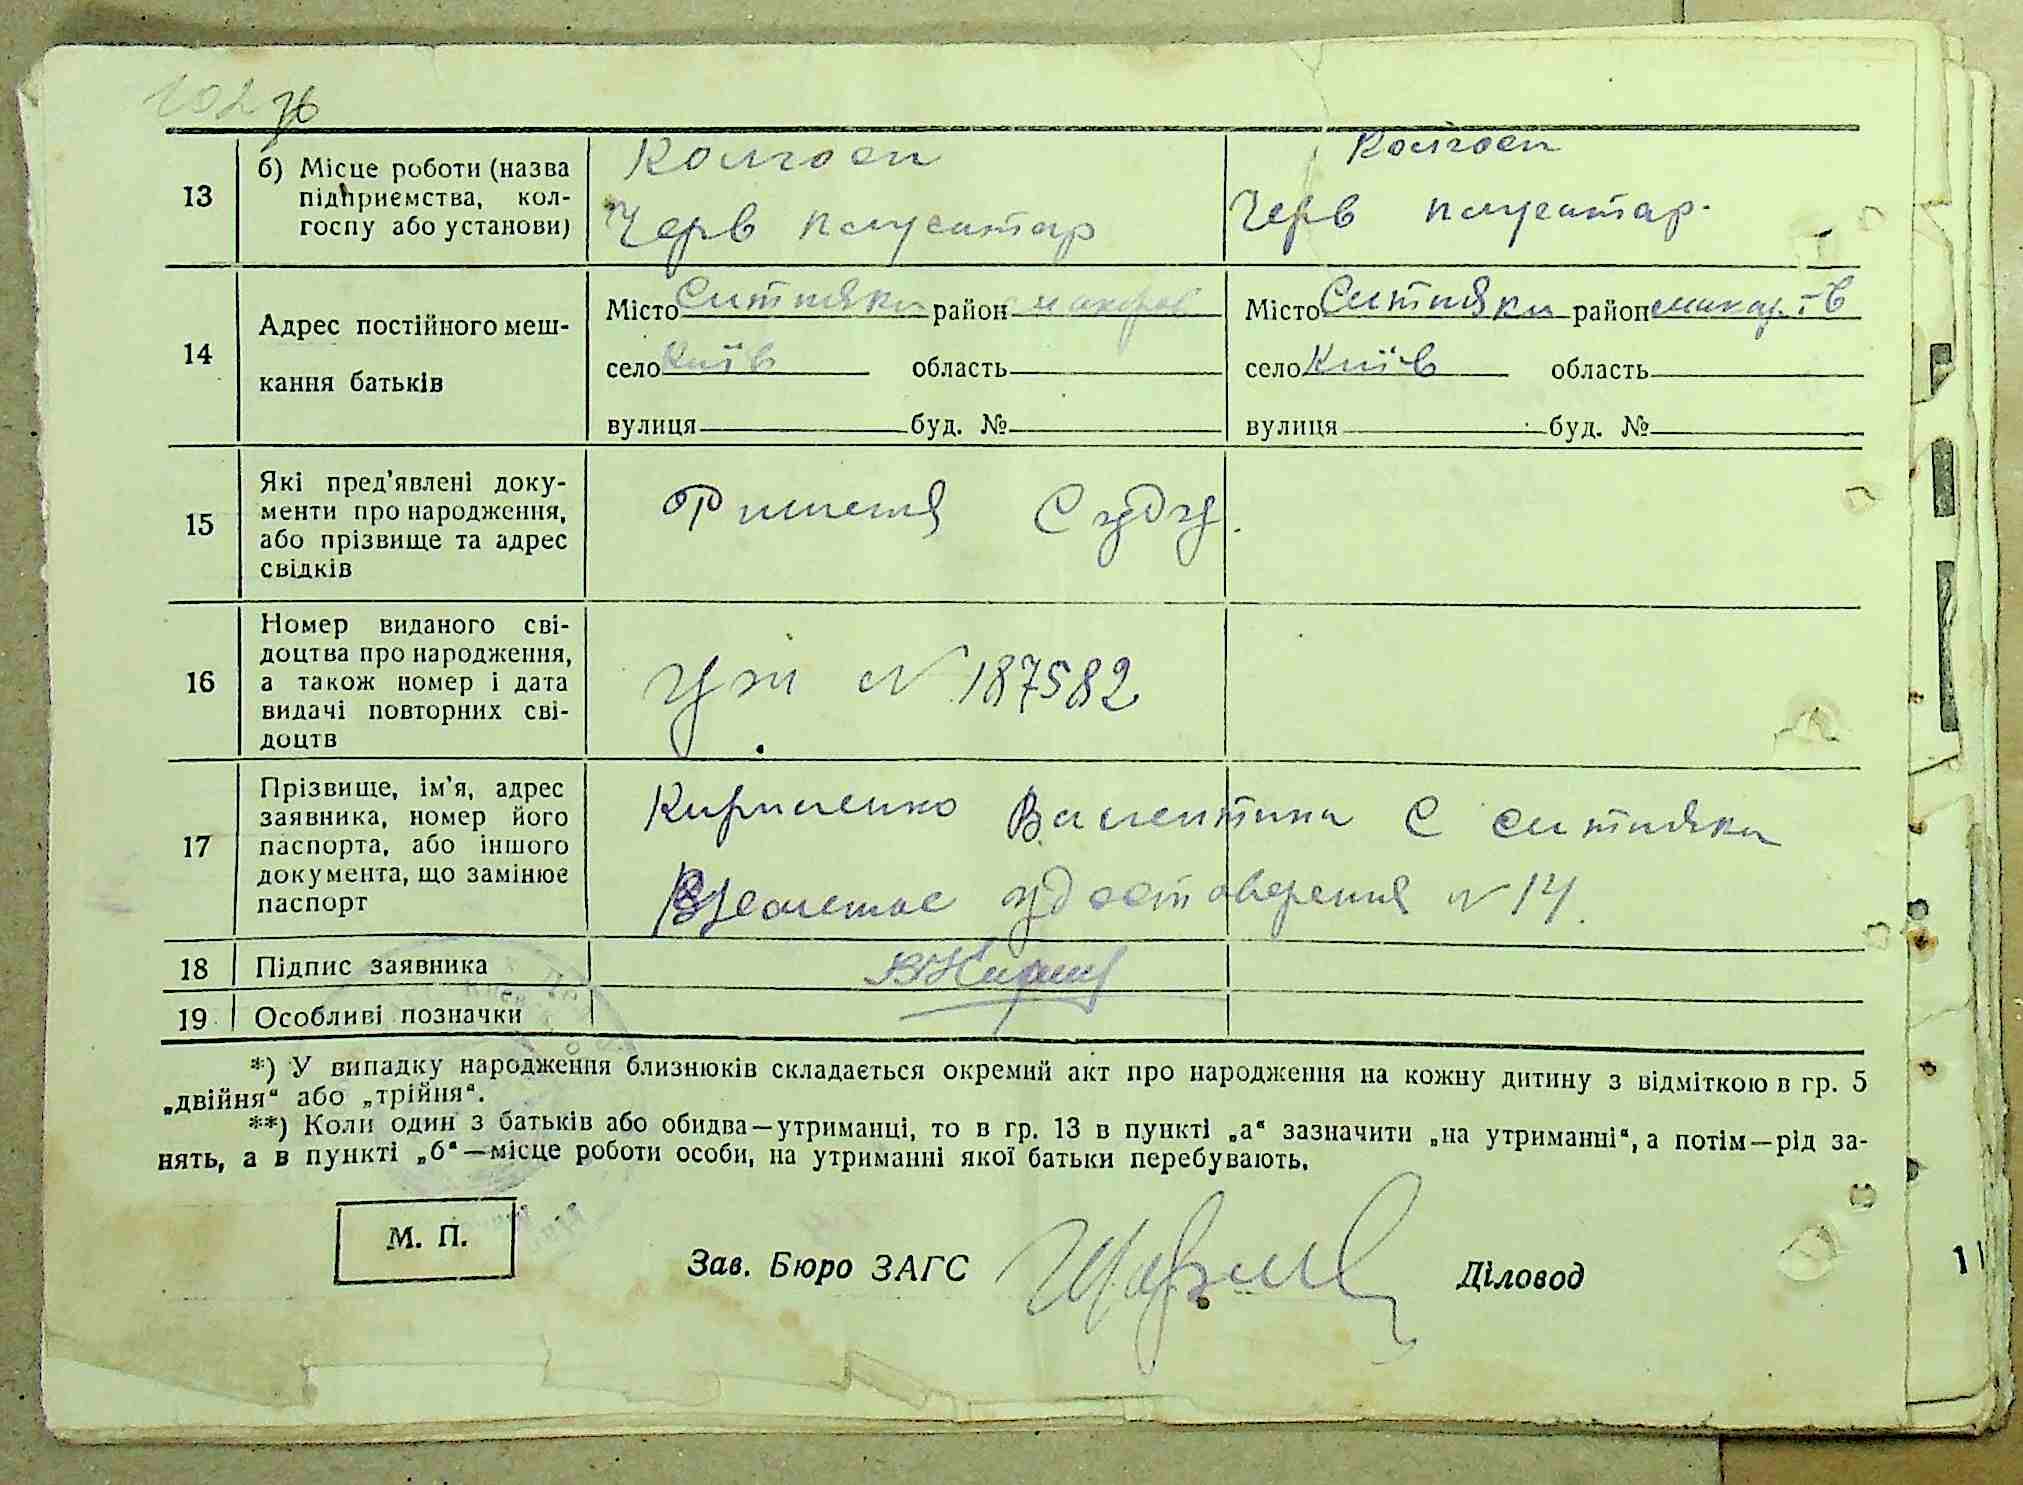 102 зв
13
б) Місце роботи (назва
підприємства, кол-
госпу або установи)
Колгосп
Черв плугатар
Колгосп
Черв плугатар.
14
Адрес постійного меш-
кання батьків
Місто Ситняки район Макаров
село Київ область
вулиця буд. №
Місто Ситняки район Макар-в
село Київ область
вулиця буд. №
15
Які пред'явлені доку-
менти про народження,
або прізвище та адрес
свідків
Ришення Суду.
16
Номер виданого сві-
доцтва про народження,
а також номер і дата
видачі повторних сві-
доцтв
N 187582
17
Прізвище, ім'я, адрес
заявника, номер його
паспорта, або іншого
документа, що замінює
паспорт
Кириленко Валентина С Ситняки
Временое удостоверения N 14.
18
Підпис заявника
19
Особливі позначки
*) У випадку народження близнюків складається окремий акт про народження на кожну дитину з відміткою в гр. 5
„двійня“ або „трійня“.
**) Коли один з батьків або обидва—утриманці, то в гр. 13 в пункті „а“ зазначити „на утриманні“, а потім—рід за-
нять, а в пункті „б“—місце роботи особи, на утриманні якої батьки перебувають.
М. П.
Зав. Бюро ЗАГС
Діловод